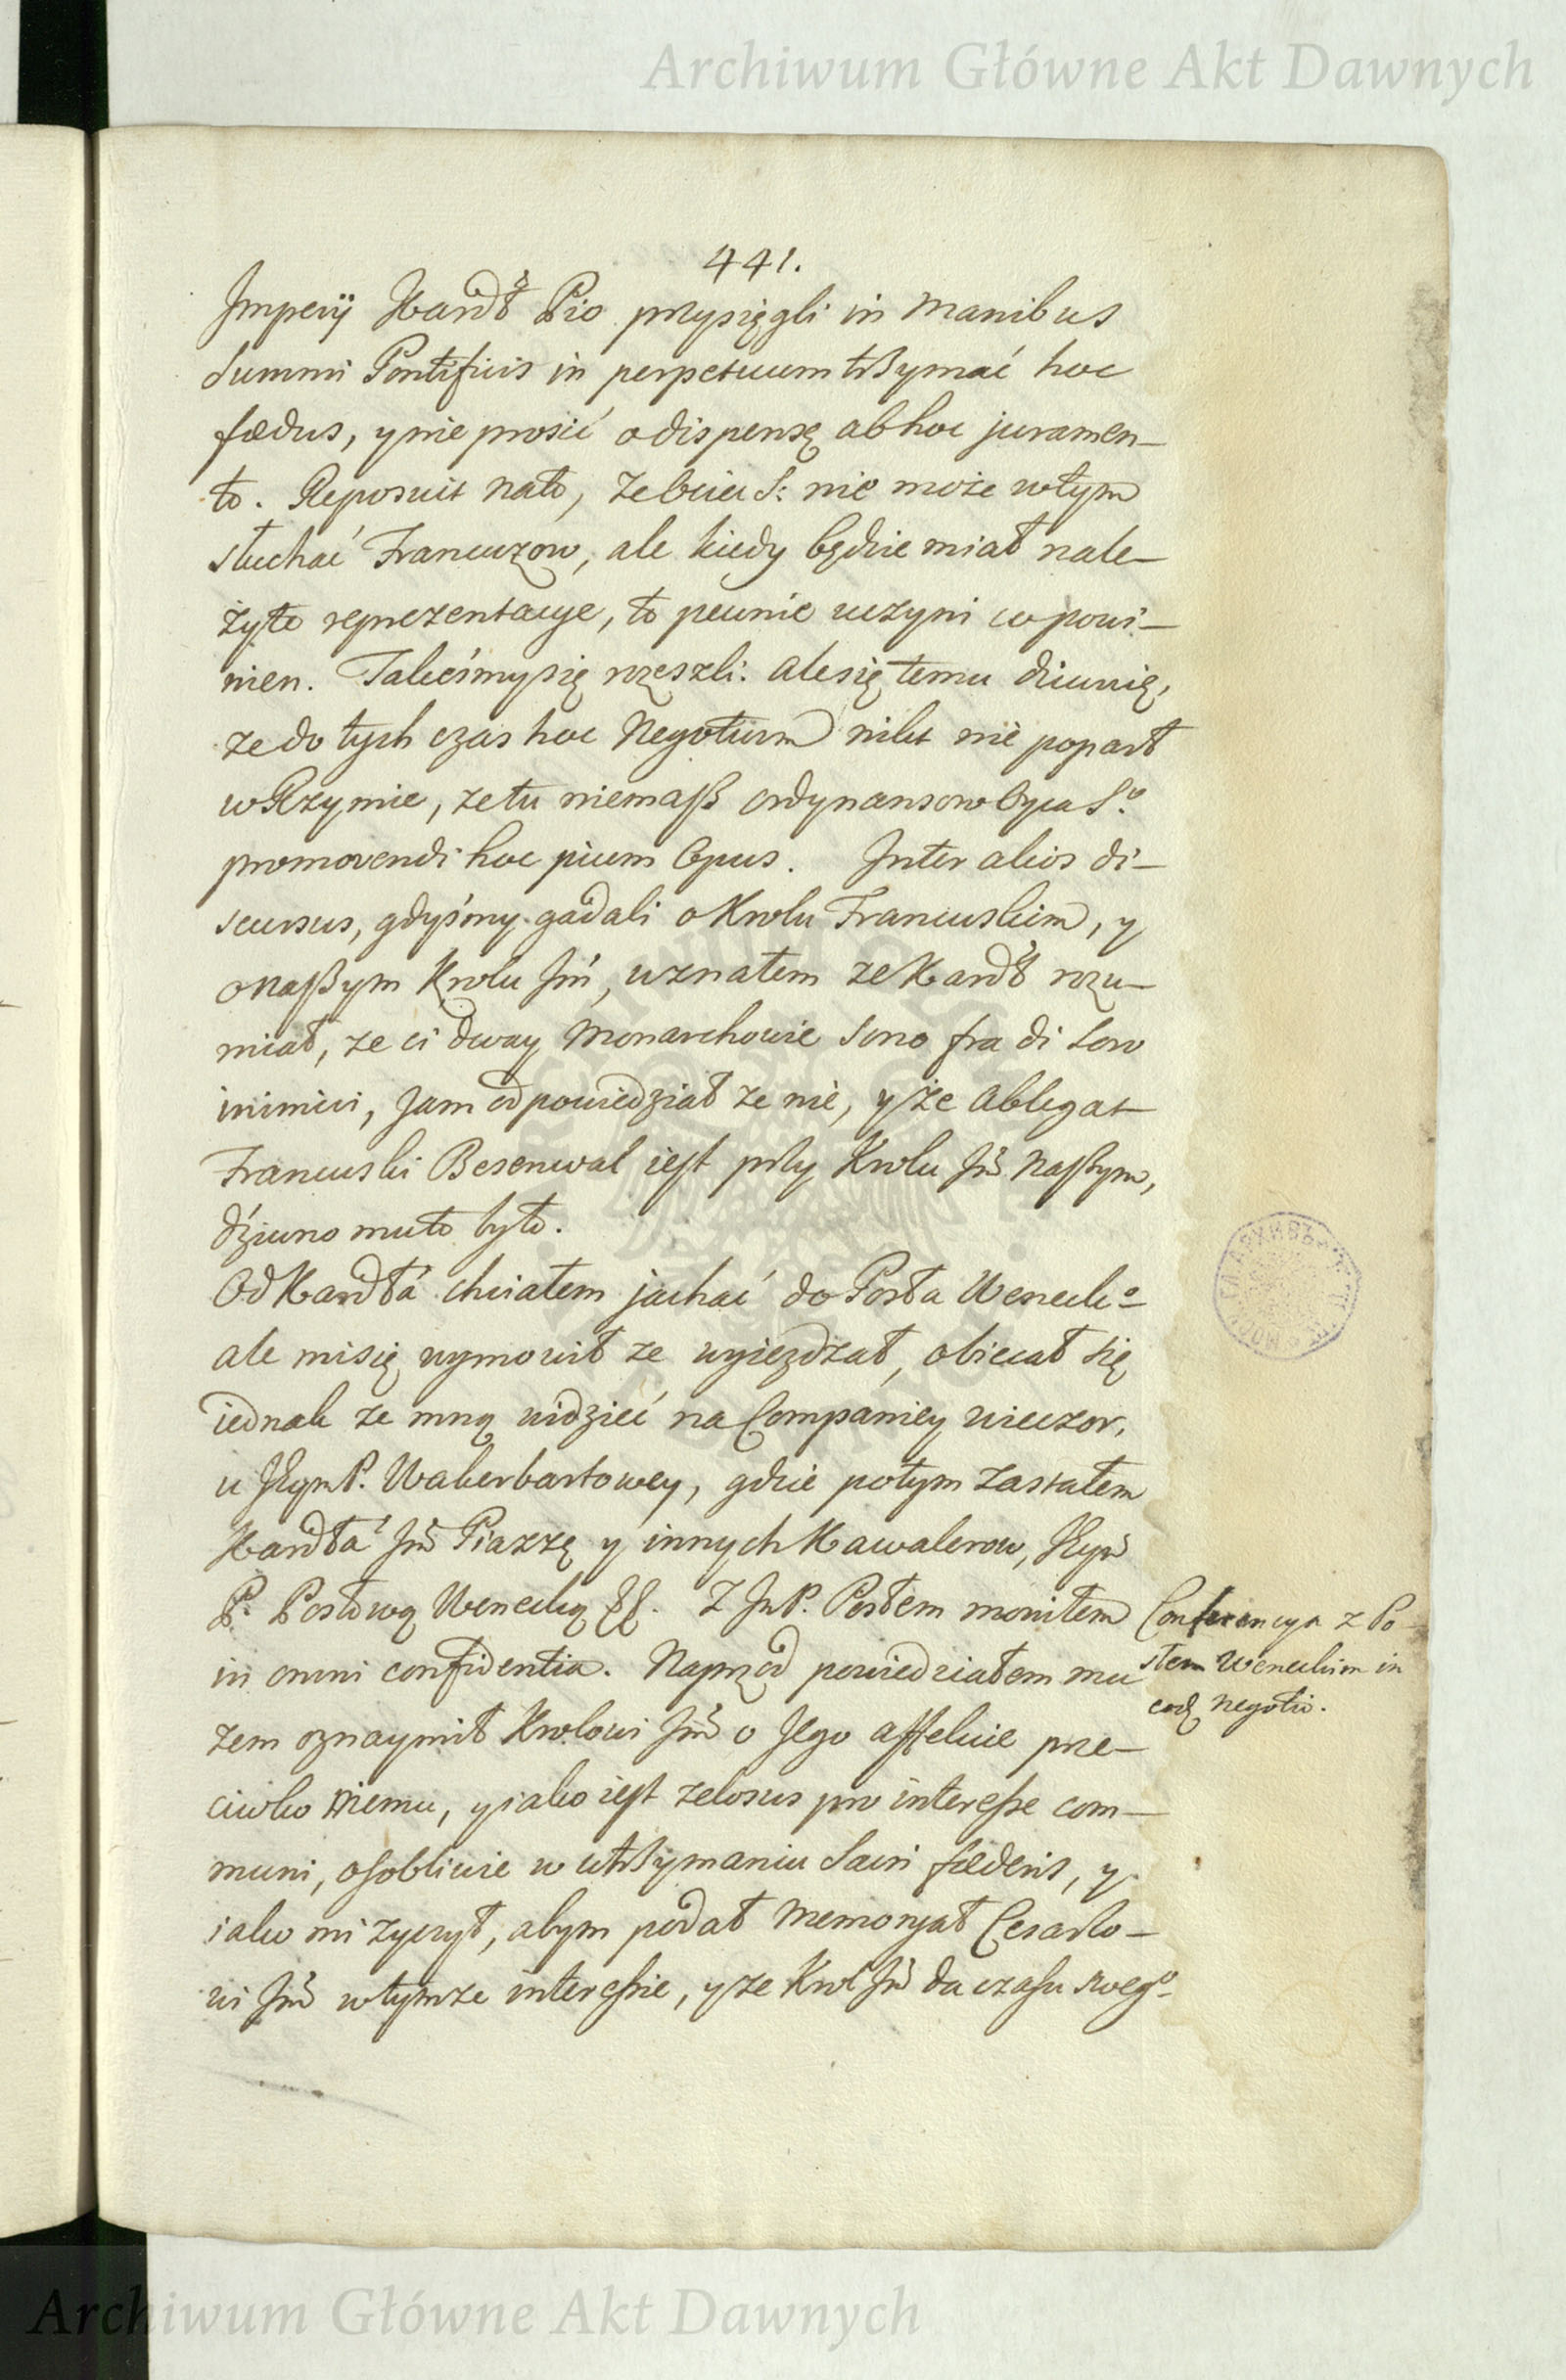 Archiwum Główne Akt Dawnych
441.
Imperij Kardł Pio przysięgli in Manibus
Summi Pontificis in perpetuum trzymać hoc
fœdus, y nie prosić o dispensę ab hoc juramen–
to. Reposuit nato, że Ociec S: nie może w tym
słuchać Francuzow, ale kiedy będzie miał nale–
żyte reprezentacye, to pewnie uczyni co powi–
nien. Takeśmy się rozeszli: ale się temu dziwuię,
że do tych czas hoc Negotium nikt nie poparł
w Rzymie, że tu niemasz ordynansow Oyca Sº.
promovendi hoc pium Opus. Inter alios di–
scursus, gdyśmy gadali o Krolu Francuskim, y
o naszym Krolu Jm̃, uznałem że Kardł rozu–
miał, że ci dway Monarchowie sono fra di loro
inimici, jam odpowiedział że nie, y że Ablegat
Francuski Besenwal iest przy Krolu Jm̃ naszym,
dźiwno mu to było.
Od Kardła chciałem jachać do Posła Weneckº
ale mi się wymowił że wyieżdżał, obiecał się
iednak ze mną widzieć na Companiey wieczor,
u JEymP. Wakerbartowey, gdzie potym zastałem
Kardła Jm̃ Piazzę y innych Kawalerow, JEym̃
P. Posłową Wenecką &&. Z JmP. Posłem mowiłem
in omni confidentia. Naprzod powiedziałem mu
żem oznaymił Krolowi Jm̃ o Jego affekcie prze–
ciwko niemu, y iako iest zelosus pro interesse com–
muni, osobliwie w utrzymaniu Sacri fœderis, y
iako mi życzył, abym podał Memoryał Cesarzo–
wi Jm̃ w tymże interessie, y że Krol Jm̃ da czasu swegº
Conferencya z Po–
słem Weneckim in
eod. negotio.
Archiwum Główne Akt Dawnych